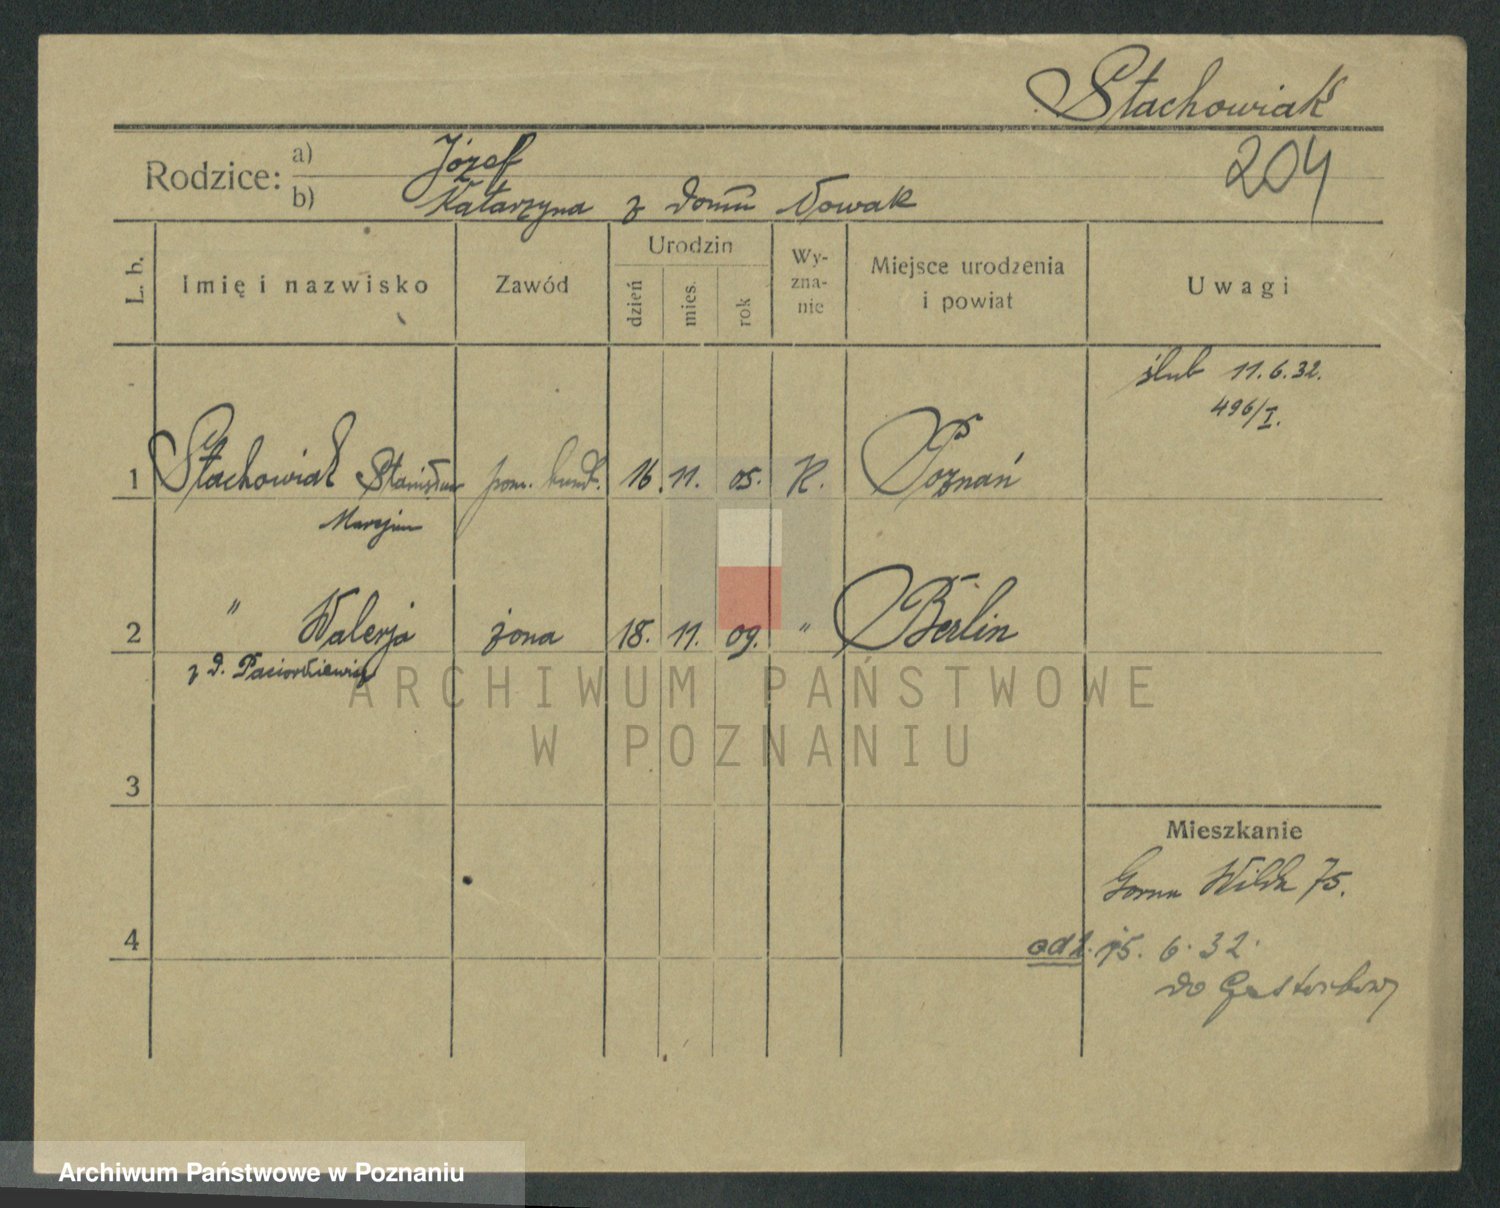 Stachowiak
204
Rodzice: a) Józef
b) Katarzyna z domu Nowak
L. b.
Imię i nazwisko
Zawód
Urodzin
dzień
mies.
rok
Wy-
zna-
nie
Miejsce urodzenia
i powiat
Uwagi
ślub 11.6.32.
496/I.
1 Stachowiak Stanisław pom. handl. 16. 11. 05. K. Poznań
Marcjan
2 " Walerja żona 18. 11. 09. " Berlin
z d. Paciorkiewicz
ARCHIWUM PAŃSTWOWE
W POZNANIU
3
Mieszkanie
Górna Wilda 75.
4
odz. 15. 6. 32.
do
Archiwum Państwowe w Poznaniu